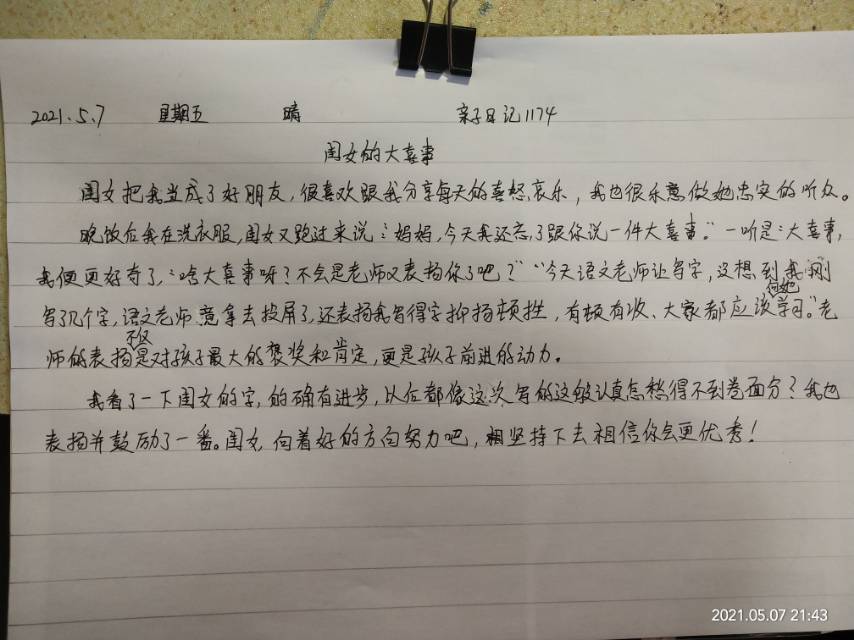 2021.5.7 星期五 晴 亲子日记1174
闺女的大喜事
闺女把我当成了好朋友,很喜欢跟我分享每天的喜怒哀乐,我也很乐意做她忠实的听众。
晚饭后我在洗衣服,闺女又跑过来说:"妈妈,今天我还忘了跟你说一件大喜事。"一听是"大喜事,
我便更好奇了,"啥大喜事呀?不会是老师又表扬你了吧?""今天语文老师让写字,没想到我刚
写了几个字,语文老师竟拿去投屏了,还表扬我写得字抑扬顿挫,有顿有收、大家都应该向她学习。"老
师的表扬不仅是对孩子最大的褒奖和肯定,更是孩子前进的动力。
我看了一下闺女的字,的确有进步,以后都像这次写的这般认真怎愁得不到卷面分?我也
表扬并鼓励了一番。闺女,向着好的方向努力吧,坚持下去相信你会更优秀!
2021.05.07 21:43